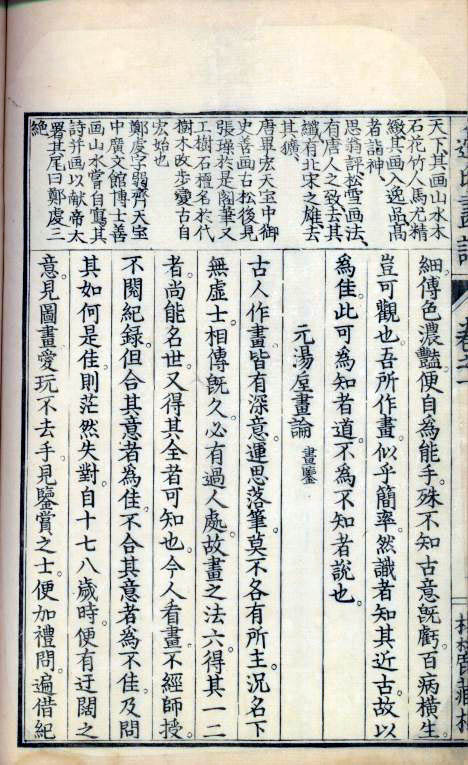 天下其画山水木
石花竹人馬尤精
緻其画入逸品高
者詣神
思翁評松雪画法
有唐人之致去其
纖有北宋之雄去
其獷
唐畢宏天宝中御
史善画古松後見
張璪於是閣筆又
工樹石擅名於代
樹木改步變古自
宏始也
鄭虔字弱齊天宝
中廣文館博士善
画山水嘗自寫其
詩并画以献帝太
署其尾曰鄭虔三
絶
卷之一
細傅色濃豔便自為能手殊不知古意既虧百病橫生
豈可觀也吾所作畫似乎簡率然識者知其近古故以
為佳此可為知者道不為不知者說也
元湯垕畫論 畫鑒
古人作畫皆有深意運思落筆莫不各有所主況名下
無虛士相傳既久必有過人處故畫之法六得其一二
者尚能名世又得其全者可知也今人看畫不經師授
不閱紀録但合其意者為佳不合其意者為不佳及問
其如何是佳則茫然失對自十七八歲時便有迂闊之
意見圖畫愛玩不去手見鑒賞之士便加禮問遍借紀